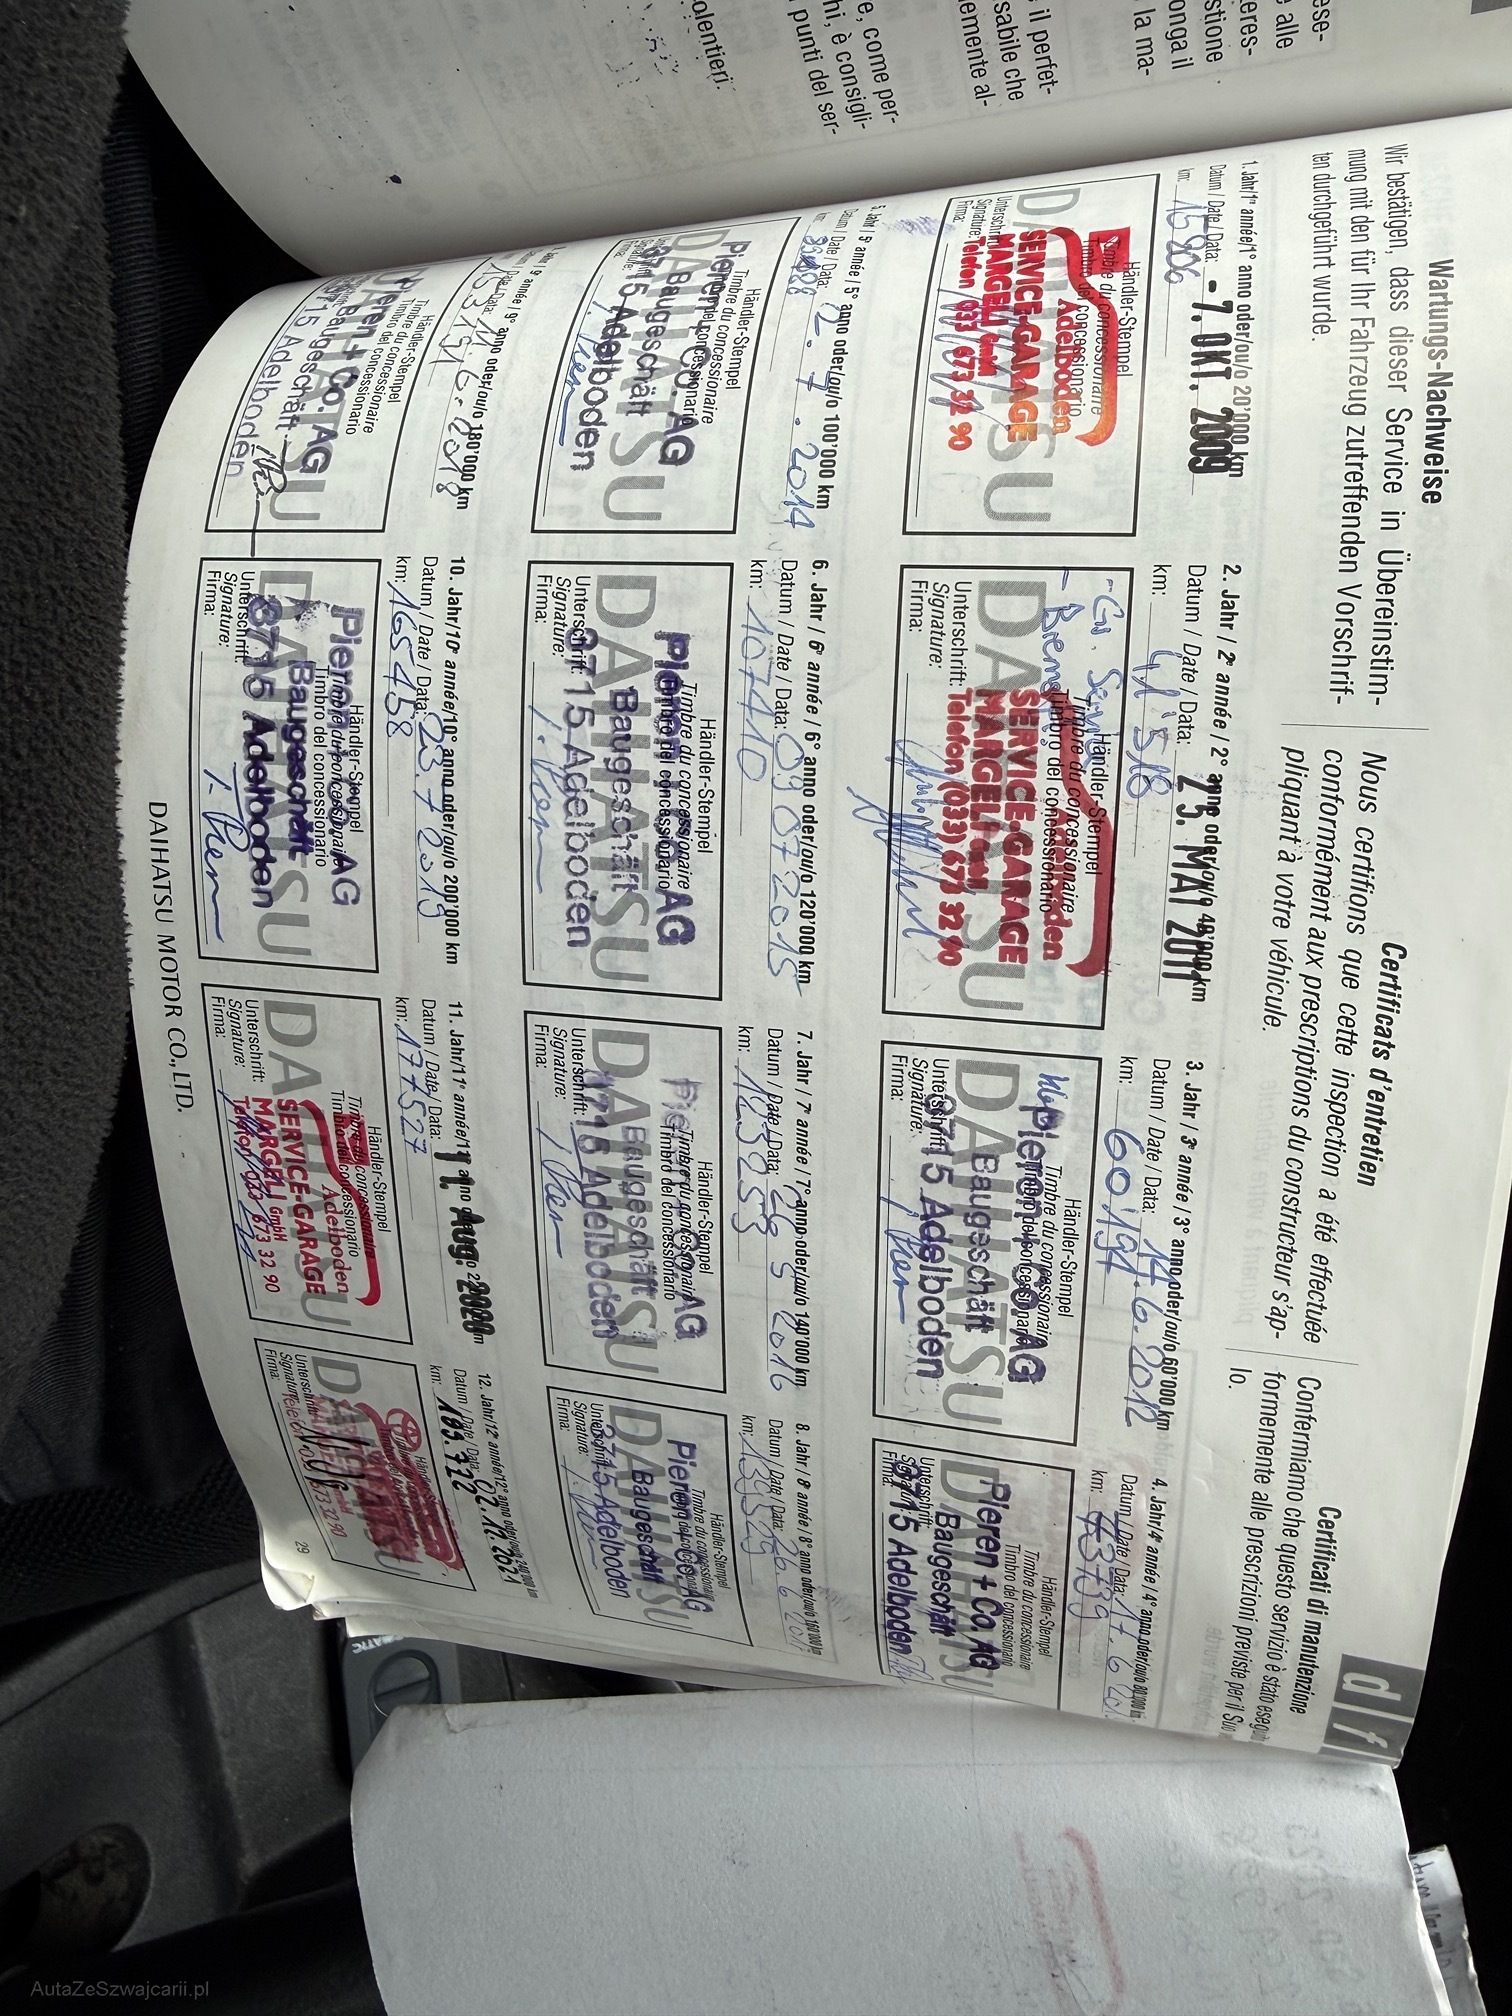 ese-
alle
eres-
stione
onga il
la ma-
il perfet-
sabile che
emente al-
e, come per-
hi, è consigli-
punti del ser-
olentieri.
Wartungs-Nachweise
Wir bestätigen, dass dieser Service in Übereinstim-
mung mit den für Ihr Fahrzeug zutreffenden Vorschrif-
ten durchgeführt wurde.
Certificats d'entretien
Nous certifions que cette inspection a été effectuée
conformément aux prescriptions du constructeur s'ap-
pliquant à votre véhicule.
Certificati di manutenzione
Confermiamo che questo servizio è stato esegui
formemente alle prescrizioni previste per il Suo
lo.
d f
1. Jahr/1e année/1° anno oder/ou/o 20'000 km
Datum / Date / Data: - 7. OKT. 2009
km: 15'806
Händler-Stempel
Timbre du concessionnaire
Timbro del concessionario
DAIHATSU
Adelboden
SERVICE-GARAGE
MARGELI GmbH
Telefon 033 673 32 90
Unterschrift:
Signature:
Firma:
2. Jahr / 2e année / 2° anno oder/ou/o 40'000 km
Datum / Date / Data: 25. MAI 2011
km: 41'518
- Gr. Service
Händler-Stempel
Timbre du concessionnaire
Timbro del concessionario
DAIHATSU
Adelboden
SERVICE-GARAGE
MARGELI GmbH
Telefon (033) 673 32 90
Unterschrift:
Signature:
Firma:
3. Jahr / 3e année / 3° anno oder/ou/o 60'000 km
Datum / Date / Data: 14.6.2012
km: 60'191
Händler-Stempel
Timbre du concessionnaire
Timbro del concessionario
DAIHATSU
Pieren + Co. AG
Baugeschäft
3715 Adelboden
Unterschrift:
Signature:
Firma:
4. Jahr/4e année/4° anno oder/ou/o 80'000 km
Datum / Date / Data: 17.6.201
km:
Händler-Stempel
Timbre du concessionnaire
Timbro del concessionario
DAIHATSU
Pieren + Co. AG
Baugeschäft
3715 Adelboden
Unterschrift:
Signature:
Firma:
5. Jahr / 5e année / 5° anno oder/ou/o 100'000 km
Datum / Date / Data: 2. 7. 2014
km:
Händler-Stempel
Timbre du concessionnaire
Timbro del concessionario
DAIHATSU
Pieren + Co. AG
Baugeschäft
3715 Adelboden
Unterschrift:
Signature:
Firma:
6. Jahr / 6e année / 6° anno oder/ou/o 120'000 km
Datum / Date / Data: 09 07 2015
km: 107410
Händler-Stempel
Timbre du concessionnaire
Timbro del concessionario
DAIHATSU
Pieren + Co. AG
Baugeschäft
3715 Adelboden
Unterschrift:
Signature:
Firma:
7. Jahr / 7e année / 7° anno oder/ou/o 140'000 km
Datum / Date / Data: 2016
km: 123253
Händler-Stempel
Timbre du concessionnaire
Timbro del concessionario
DAIHATSU
Pieren + Co. AG
Baugeschäft
3715 Adelboden
Unterschrift:
Signature:
Firma:
8. Jahr / 8e année / 8° anno oder/ou/o 160'000 km
Datum / Date / Data:
km:
Händler-Stempel
Timbre du concessionnaire
Timbro del concessionario
DAIHATSU
Pieren + Co. AG
Baugeschäft
3715 Adelboden
Unterschrift:
Signature:
Firma:
Jahr / 9e année / 9° anno oder/ou/o 180'000 km
Date / Data: 11.6.2018
153151
Händler-Stempel
Timbre du concessionnaire
Timbro del concessionario
DAIHATSU
Pieren + Co. AG
Baugeschäft
3715 Adelboden
10. Jahr/10e année/10° anno oder/ou/o 200'000 km
Datum / Date / Data: 23.7 2019
km: 165458
Händler-Stempel
Timbre du concessionnaire
Timbro del concessionario
DAIHATSU
Pieren + Co. AG
Baugeschäft
3715 Adelboden
Unterschrift:
Signature:
Firma:
11. Jahr/11e année/11° anno
Datum / Date / Data: 11. Aug. 2020
km: 177527
Händler-Stempel
Timbre du concessionnaire
Timbro del concessionario
DAIHATSU
Adelboden
SERVICE-GARAGE
MARGELI GmbH
Telefon 033 673 32 90
Unterschrift:
Signature:
Firma:
12. Jahr/12e année/12° anno oder/ou/o 240'000 km
Datum / Date / Data: 02.12.2021
km: 189.722
DAIHATSU
Telefon 033 673 32 90
Unterschrift:
Signature:
Firma:
DAIHATSU MOTOR CO., LTD.
29
AutaZeSzwajcarii.pl